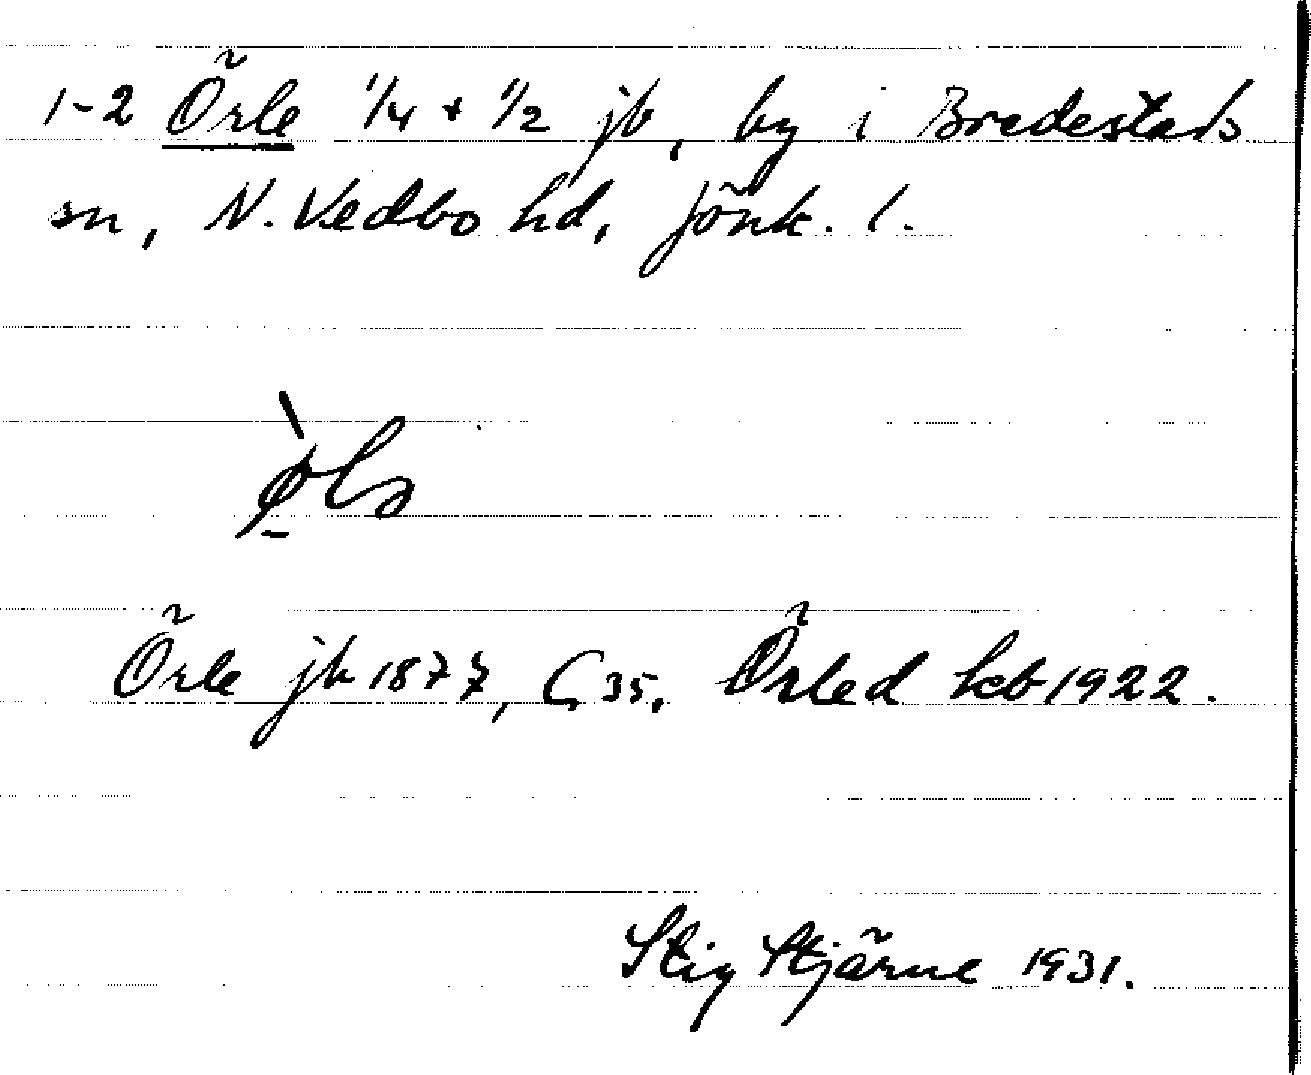 1-2 Örle 1/4 + 1/2 jb, by i Bredestads
sn, N. Vedbo hd, Jönk. l.
Örle jb 1877, G 35, Örled kb 1922.
Stig Stjärne 1931.